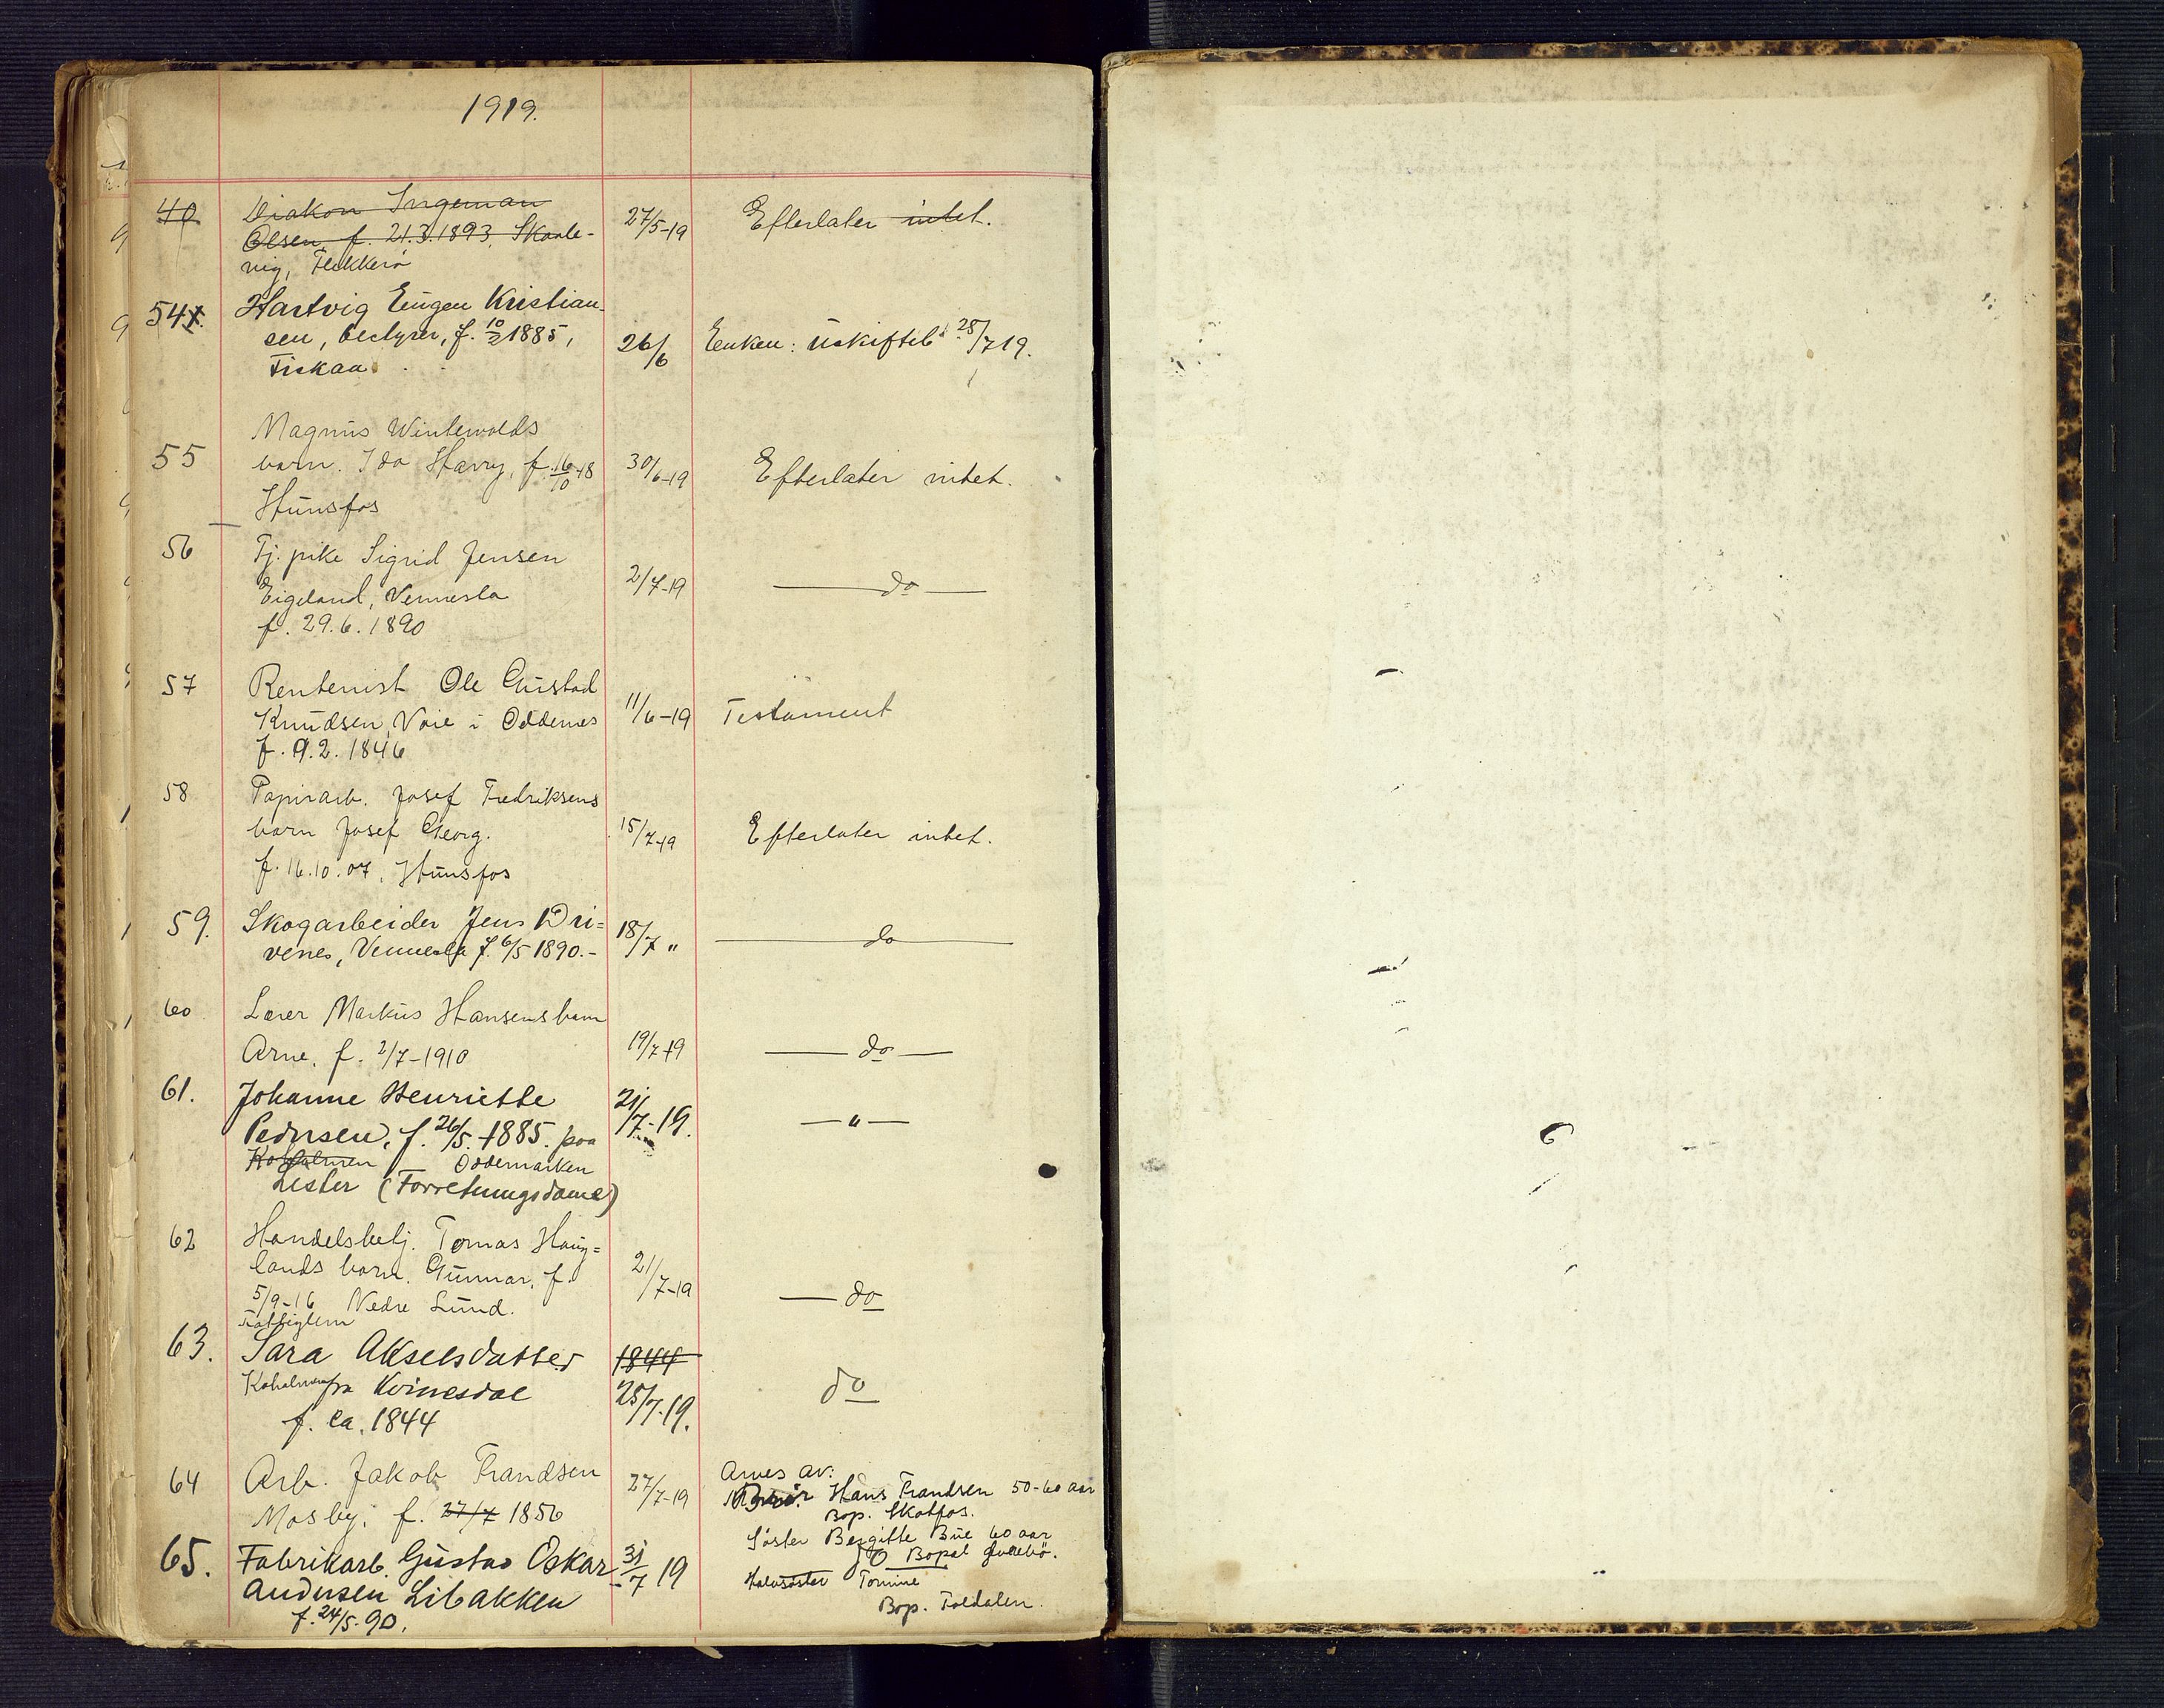 1919.
40 Diakon Ingeman
Olsen, f. 21.3.1893, Skaale- 27/5-19 Efterlater intet.
vig, Flekkerö
54 Hartvig Eugen Kristian-
sen, bestyrer, f. 10/2 1885, 26/6 Enken: Uskiftib. 28/7 19.
Fiskaa
Magnus Wintervolds
55 barn. Ida Harry, f. 16/10-18 30/6-19 Efterlater intet.
Hunsfos
56 Tj. pike Sigrid Jensen
Eigeland, Vennesla 2/7-19 — do —
f. 29.6.1890
57 Rentenist Ole Gustad
Knudsen, Voie i Oddernes 11/6-19 Testament
f. 9.2.1846
58 Papirarb. Josef Fredriksens
barn Josef Georg. 15/7-19 Efterlater intet.
f. 16.10.07, Hunsfos
59. Skogarbeider Jens Dri=
venes, Vennesla f. 6/5 1890.- 18/7 " — do —
60 Lærer Markus Hansens barn
Arne, f. 2/7-1910 19/7-19 — do —
61. Johanne Henriette
Pedersen, f. 26/5. 1885. paa 21/7-19. — " —
Koholmen Oddemarken
Lister (Forretningsdame)
62 Handelsbetj. Tomas Haug=
lands barn. Gunnar, f. 21/7-19
5/9-16 Nedre Lund. — do
Fattiglem
63. Sara Akselsdatter 1844
Koholmen fra Kvinesdal 25/7.19. do
f. ca. 1844
64 Arb. Jakob Frandsen 27/7-19 Arves av:
Mosby, f. 27/7 1856 Hans Frandsen 50-60 aar
Bop. Skotfos.
Söster Bergitte Bue 60 aar
65. Fabrikarb. Gustav Oskar 31/7 19 Bopæl
Andersen Libakken Halvsöster Tomine
f. 24/5-90. Bop. Foldalen.